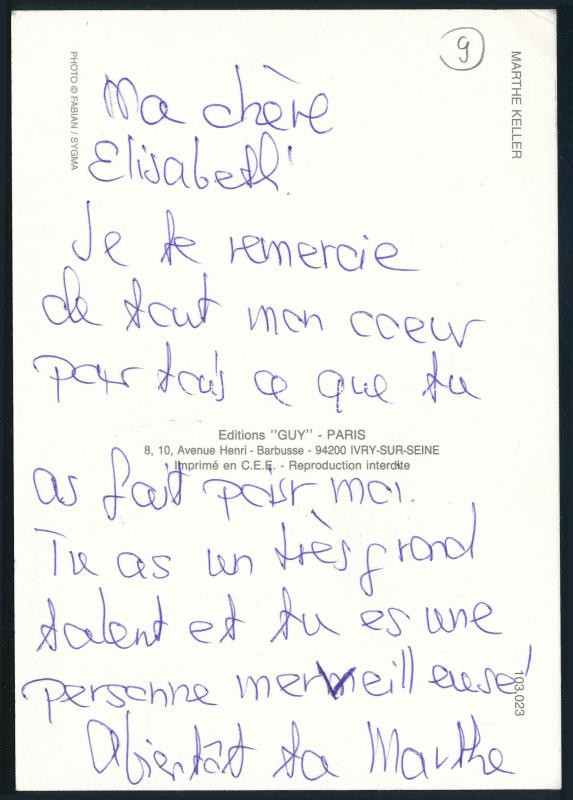 9
MARTHE KELLER
PHOTO © FABIAN / SYGMA
Ma chère
Elisabeth!
Je te remercie
de tout mon coeur
pour tous ce que tu
Editions "GUY" - PARIS
8, 10, Avenue Henri - Barbusse - 94200 IVRY-SUR-SEINE
Imprimé en C.E.E. - Reproduction interdite
as fait pour moi.
Tu as un très grand
talent et tu es une
personne merveilleuse!
103.023
Abientôt ta Marthe